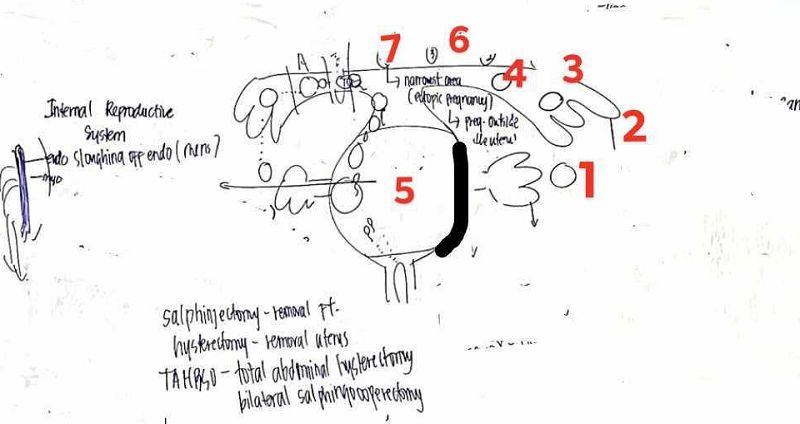 7
6
3
4
2
1
5
(3)
narrowst area
(ectopic pregnancy)
preg. outside
the uterus
Internal Reproductive
System
endo sloughing off endo (mens)
myo
salphinjectomy - removal FT.
hysterectomy - removal uterus
TAHBSO - total abdominal hysterectomy
bilateral salphingooperectomy